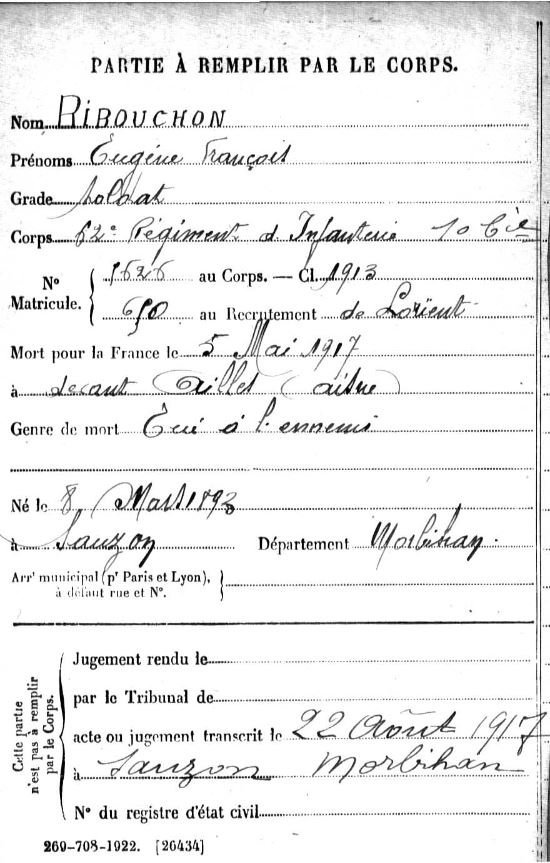 PARTIE À REMPLIR PAR LE CORPS.
Nom RIBOUCHON
Prénoms Eugène François
Grade soldat
Corps 62e Régiment d Infanterie 10 Cie
N° Matricule. { 5626 au Corps. — Cl. 1913
650 au Recrutement de Lorient
Mort pour la France le 5 Mai 1917
à devant Aisne)
Genre de mort Tué à l'ennemi
Né le 8 Mars 1893
à Sauzon Département Morbihan.
Arrt municipal (pr Paris et Lyon),
à défaut rue et N°.
Cette partie n'est pas à remplir par le Corps.
Jugement rendu le
par le Tribunal de
acte ou jugement transcrit le 22 Août 1917
à Sauzon Morbihan
N° du registre d'état civil
269-708-1922. [26434]